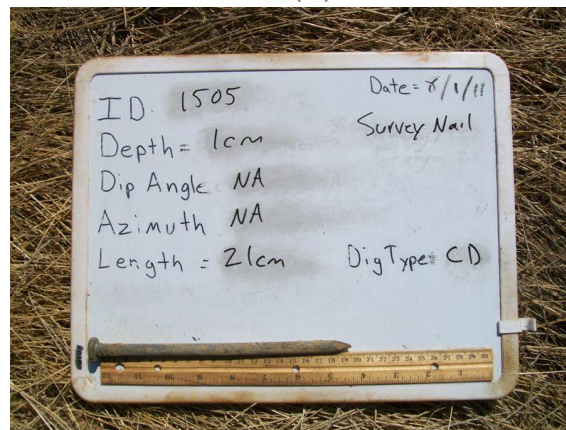 ID: 1505
Date = 8/1/11
Survey Nail
Depth = 1cm
Dip Angle NA
Azimuth NA
Length = 21cm
Dig Type: CD